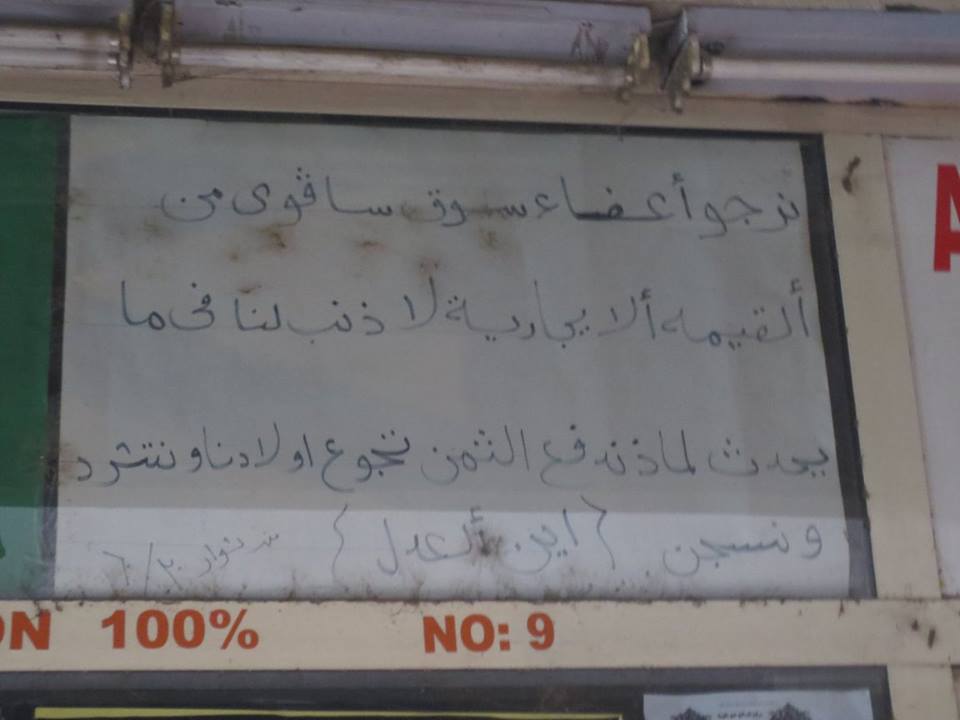 نرجو أعضاء سوق ساڤوى من
ألقيمه ألايجارية لا ذنب لنا فى ما
يحدث لماذ ندفع الثمن تجوع اولادنا ونتشرد
ونسجن {اين ألعدل}
ON 100% NO: 9